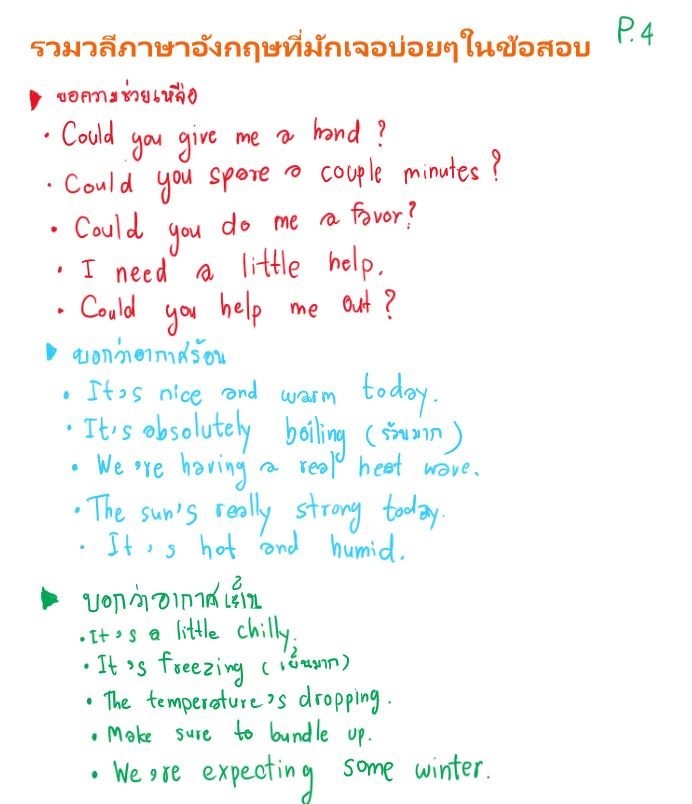 รวมวลีภาษาอังกฤษที่มักเจอบ่อยๆในข้อสอบ P.4
ขอความช่วยเหลือ
• Could you give me a hand ?
• Could you spare a couple minutes ?
• Could you do me a favor?
• I need a little help.
• Could you help me out ?
บอกว่าอากาศร้อน
• It's nice and warm today.
• It's absolutely boiling (ร้อนมาก)
• We're having a real heat wave.
• The sun's really strong today.
• It's hot and humid.
บอกว่าอากาศเย็น
• It's a little chilly.
• It's freezing (เย็นมาก)
• The temperature's dropping.
• Make sure to bundle up.
• We're expecting some winter.